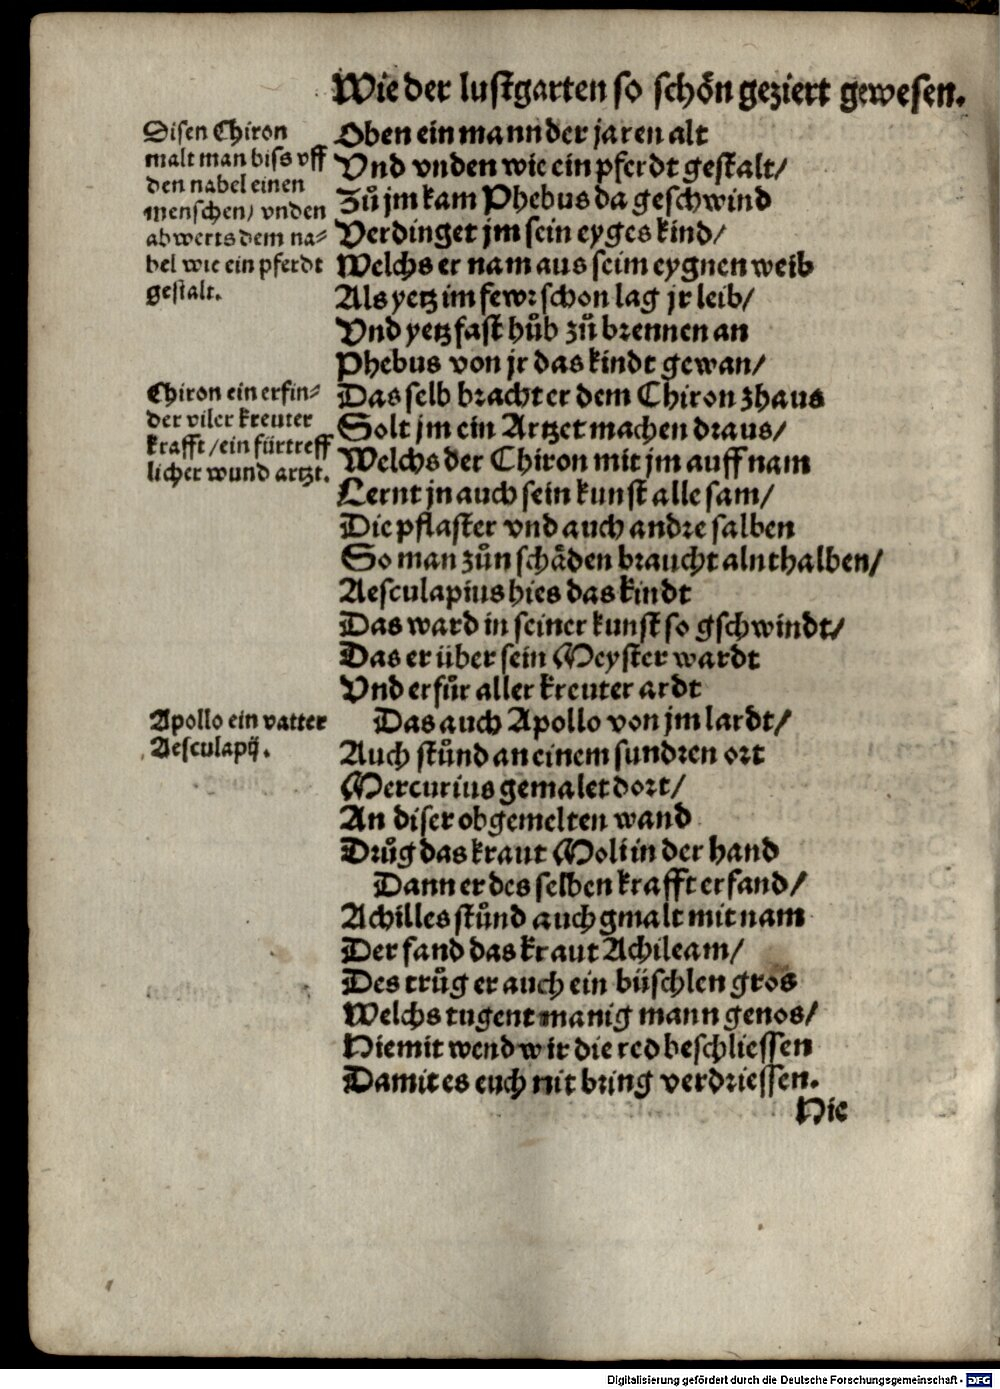 Wie der lustgarten so schoͤn geziert gewesen.
Disen Chiron
malt man biss vff
den nabel einen
menschen/ vnden
abwerts dem na⸗
bel wie ein pferdt
gestalt.
Oben ein mann der jaren alt
Vnd vnden wie ein pferdt gestalt/
Zuͦ jm kam Phebus da geschwind
Verdinget jm sein eyges kind/
Welchs er nam aus seim eygnen weib
Als yetz im fewr schon lag jr leib/
Vnd yetz fast huͦb zuͦ brennen an
Phebus von jr das kindt gewan/
Chiron ein erfin⸗
der viler kreuter
krafft/ ein fürtreff
licher wund artzt.
Das selb bracht er dem Chiron zhaus
Solt jm ein Artzet machen draus/
Welchs der Chiron mit jm auff nam
Lernt jn auch sein kunst alle sam/
Die pflaster vnd auch andre salben
So man zuͦn schaͤden braucht alnthalben/
Aesculapius hies das kindt
Das ward in seiner kunst so gschwindt/
Das er über sein Meyster wardt
Vnd erfuͦr aller kreuter ardt
Apollo ein vatter
Aesculapij.
Das auch Apollo von jm lardt/
Auch stuͦnd an einem sundren ort
Mercurius gemalet dort/
An diser obgemelten wand
Druͦg das kraut Moli in der hand
Dann er des selben krafft erfand/
Achilles stuͦnd auch gmalt mit nam
Der fand das kraut Achileam/
Des truͦg er auch ein büschlen gros
Welchs tugent manig mann genos/
Hiemit wend wir die red beschliessen
Damit es euch nit bring verdriessen.
Hie
Digitalisierung gefördert durch die Deutsche Forschungsgemeinschaft - DFG